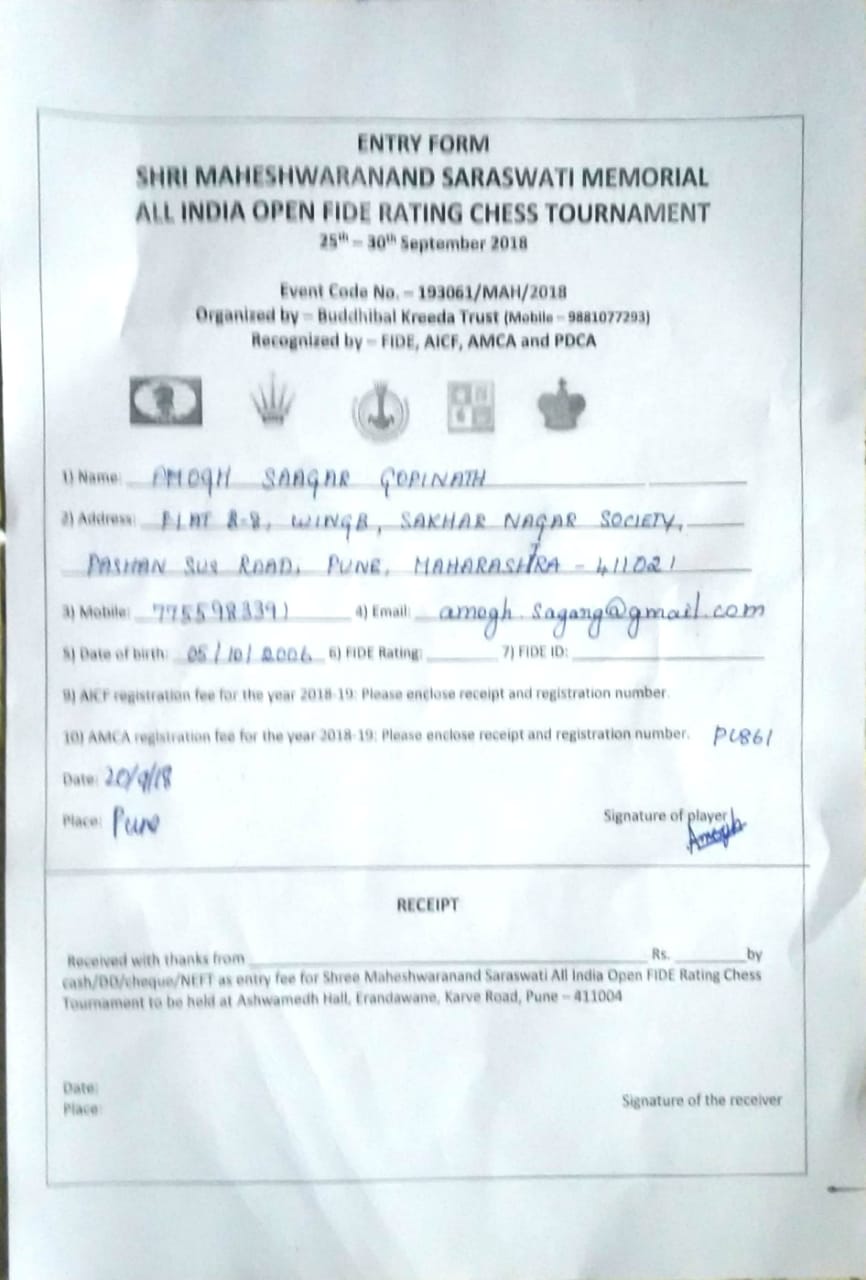 ENTRY FORM
SHRI MAHESHWARANAND SARASWATI MEMORIAL
ALL INDIA OPEN FIDE RATING CHESS TOURNAMENT
25th – 30th September 2018
Event Code No. – 193061/MAH/2018
Organized by – Buddhibal Kreeda Trust (Mobile – 9881077293)
Recognized by – FIDE, AICF, AMCA and PDCA
1) Name: AMOGH SAAGAR GOPINATH
2) Address: FLAT B-8, WING B, SAKHAR NAGAR SOCIETY,
PASHAN SUS ROAD, PUNE, MAHARASHTRA - 411021
3) Mobile: 7755983391 4) Email: amogh.sagang@gmail.com
5) Date of birth: 05/10/2006 6) FIDE Rating: 7) FIDE ID:
9) AICF registration fee for the year 2018-19: Please enclose receipt and registration number.
10) AMCA registration fee for the year 2018-19: Please enclose receipt and registration number. PU861
Date: 20/9/18
Place: Pune
Signature of player
Amogh
RECEIPT
Received with thanks from Rs. by
cash/DD/cheque/NEFT as entry fee for Shree Maheshwaranand Saraswati All India Open FIDE Rating Chess
Tournament to be held at Ashwamedh Hall, Erandawane, Karve Road, Pune – 411004
Date:
Place:
Signature of the receiver